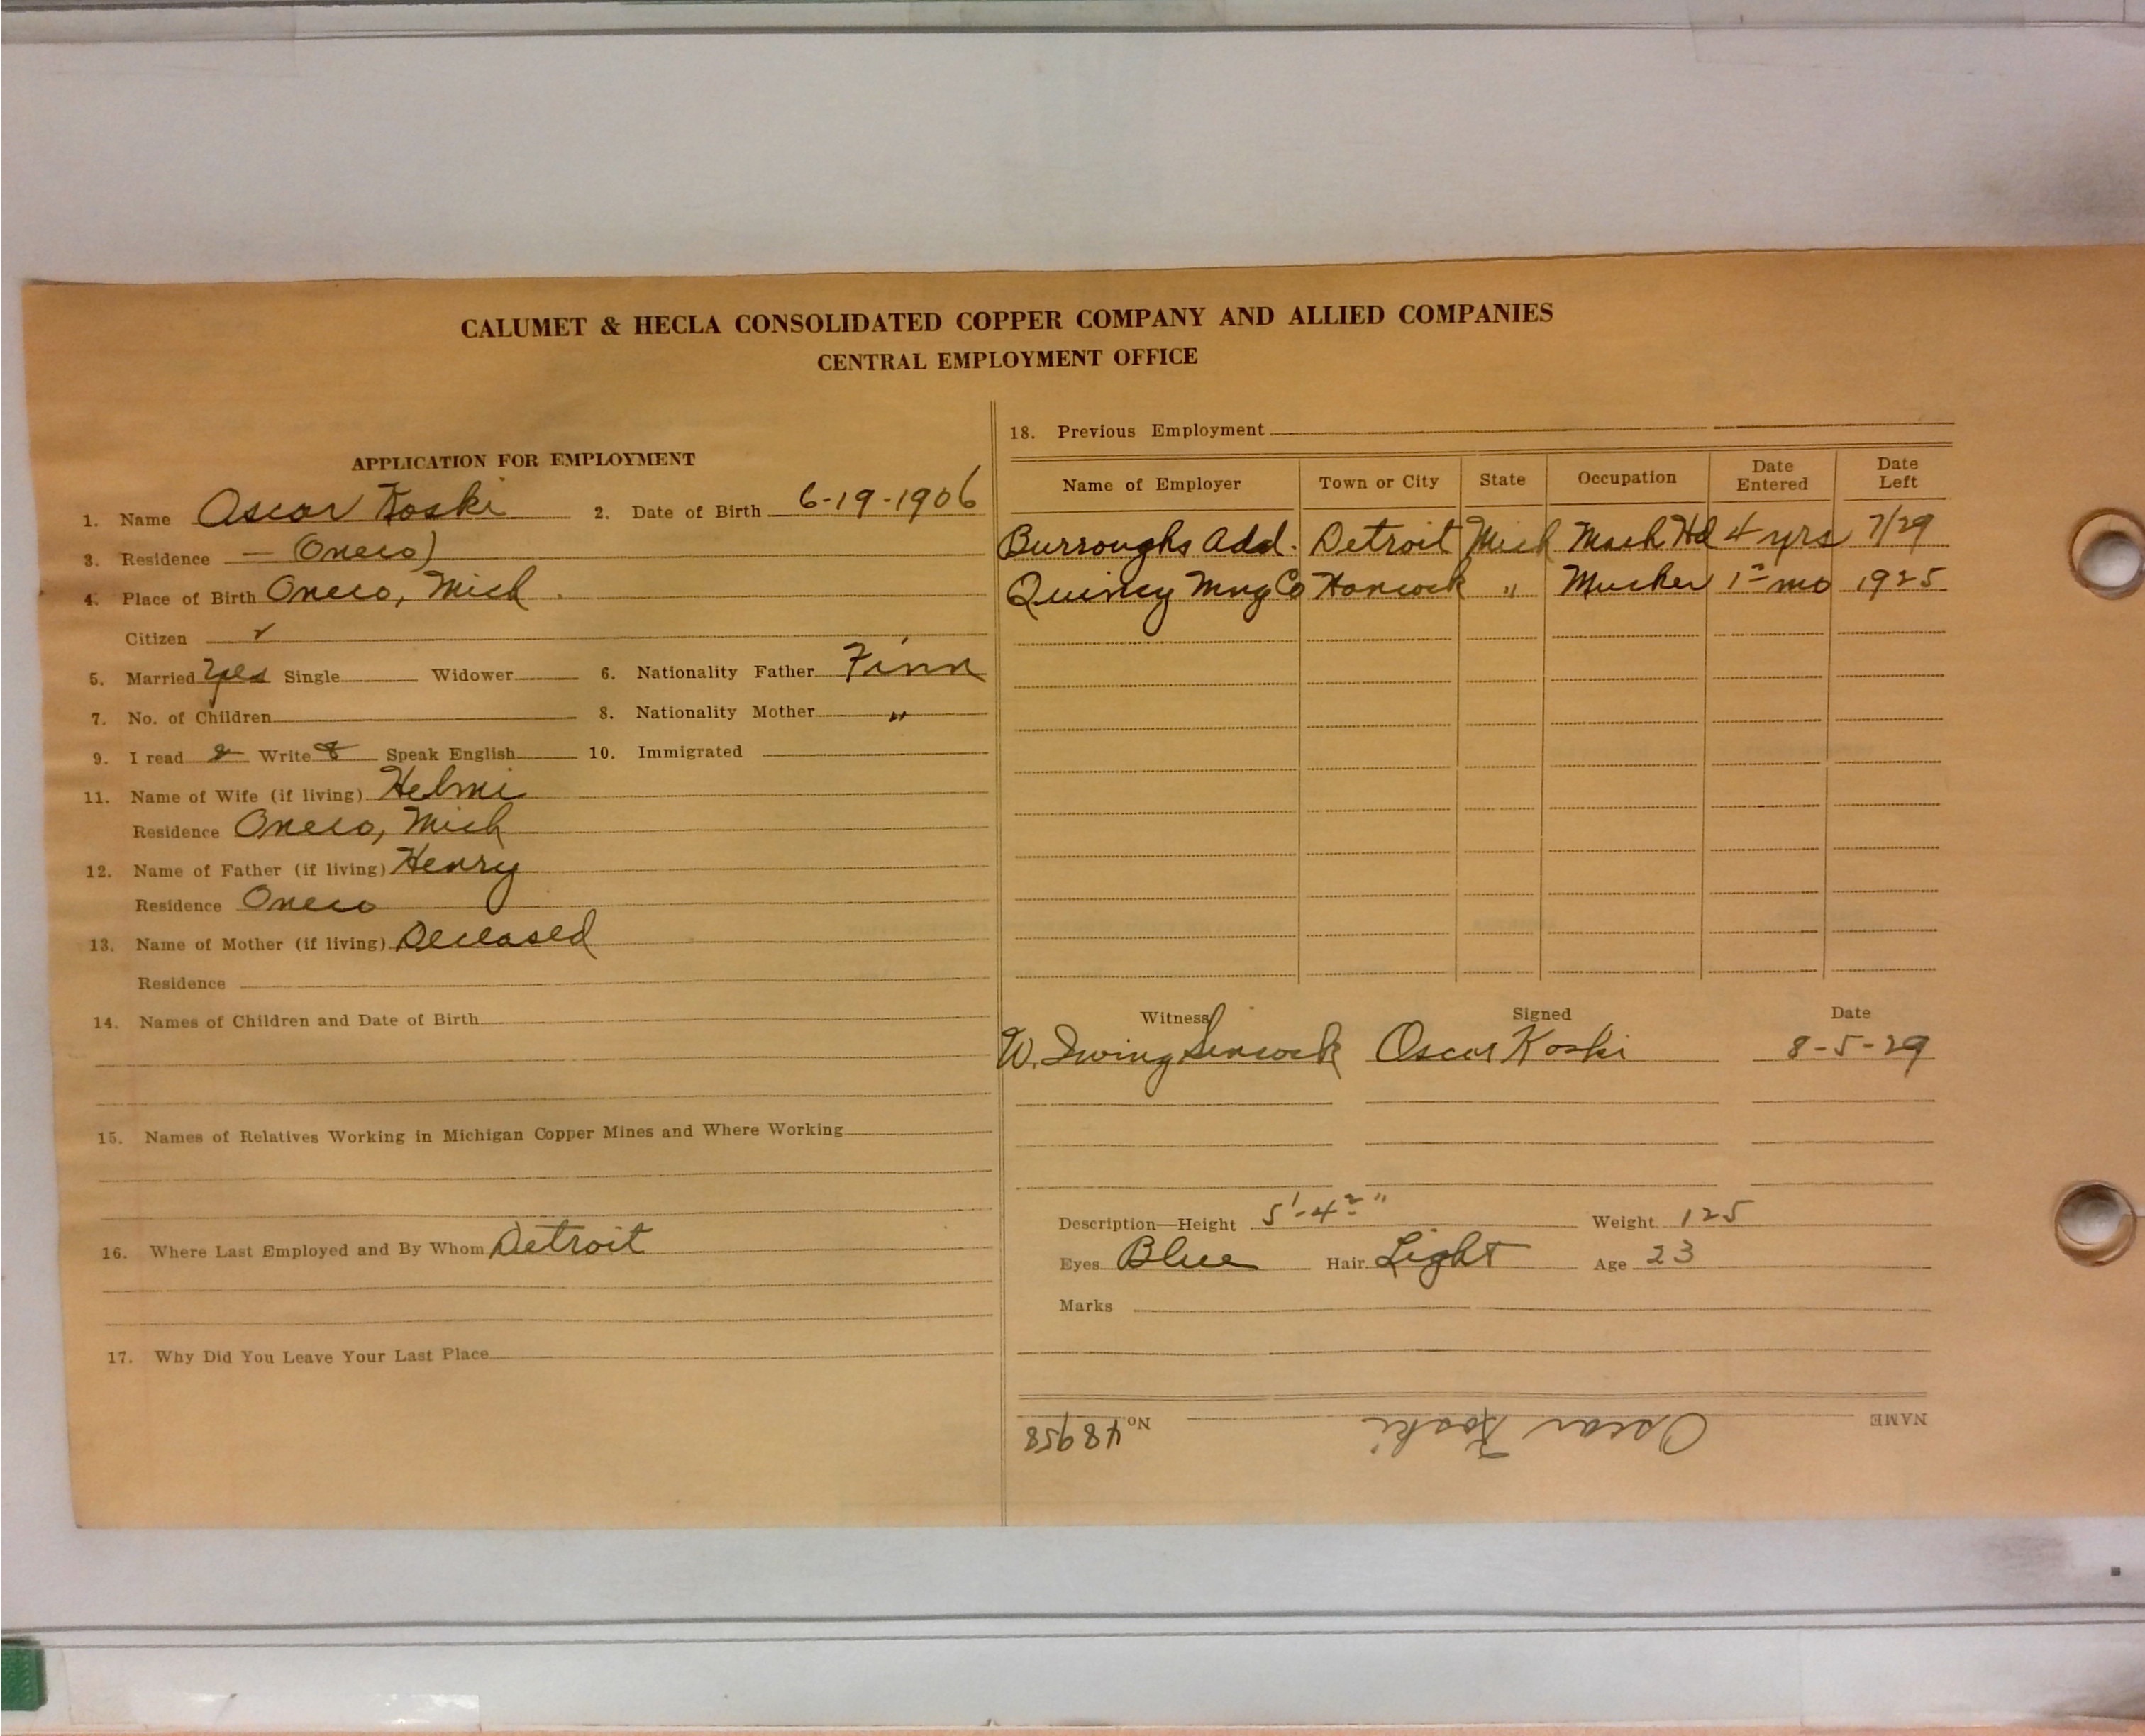 CALUMET & HECLA CONSOLIDATED COPPER COMPANY AND ALLIED COMPANIES
CENTRAL EMPLOYMENT OFFICE
APPLICATION FOR EMPLOYMENT
1. Name Oscar Koski 2. Date of Birth 6-19-1906
3. Residence — (Oneco)
4. Place of Birth Oneco, Mich.
Citizen ✓
5. Married Yes Single Widower 6. Nationality Father Finn
7. No. of Children 8. Nationality Mother "
9. I read & Write & Speak English 10. Immigrated
11. Name of Wife (if living) Helmi
Residence Oneco, Mich
12. Name of Father (if living) Henry
Residence Oneco
13. Name of Mother (if living) Deceased
Residence
14. Names of Children and Date of Birth
15. Names of Relatives Working in Michigan Copper Mines and Where Working
16. Where Last Employed and By Whom Detroit
17. Why Did You Leave Your Last Place
18. Previous Employment
Name of Employer Town or City State Occupation Date Entered Date Left
Burroughs Add. Detroit Mich Mach Hd 4 yrs 7/29
Quincy Mng Co Hancock " Mucker 1 mo 1925
Witness Signed Date
W. Irving Oscar Koski 8-5-29
Description—Height 5'-4" Weight 125
Eyes Blue Hair Light Age 23
Marks
NAME Oscar Koski No. 48958